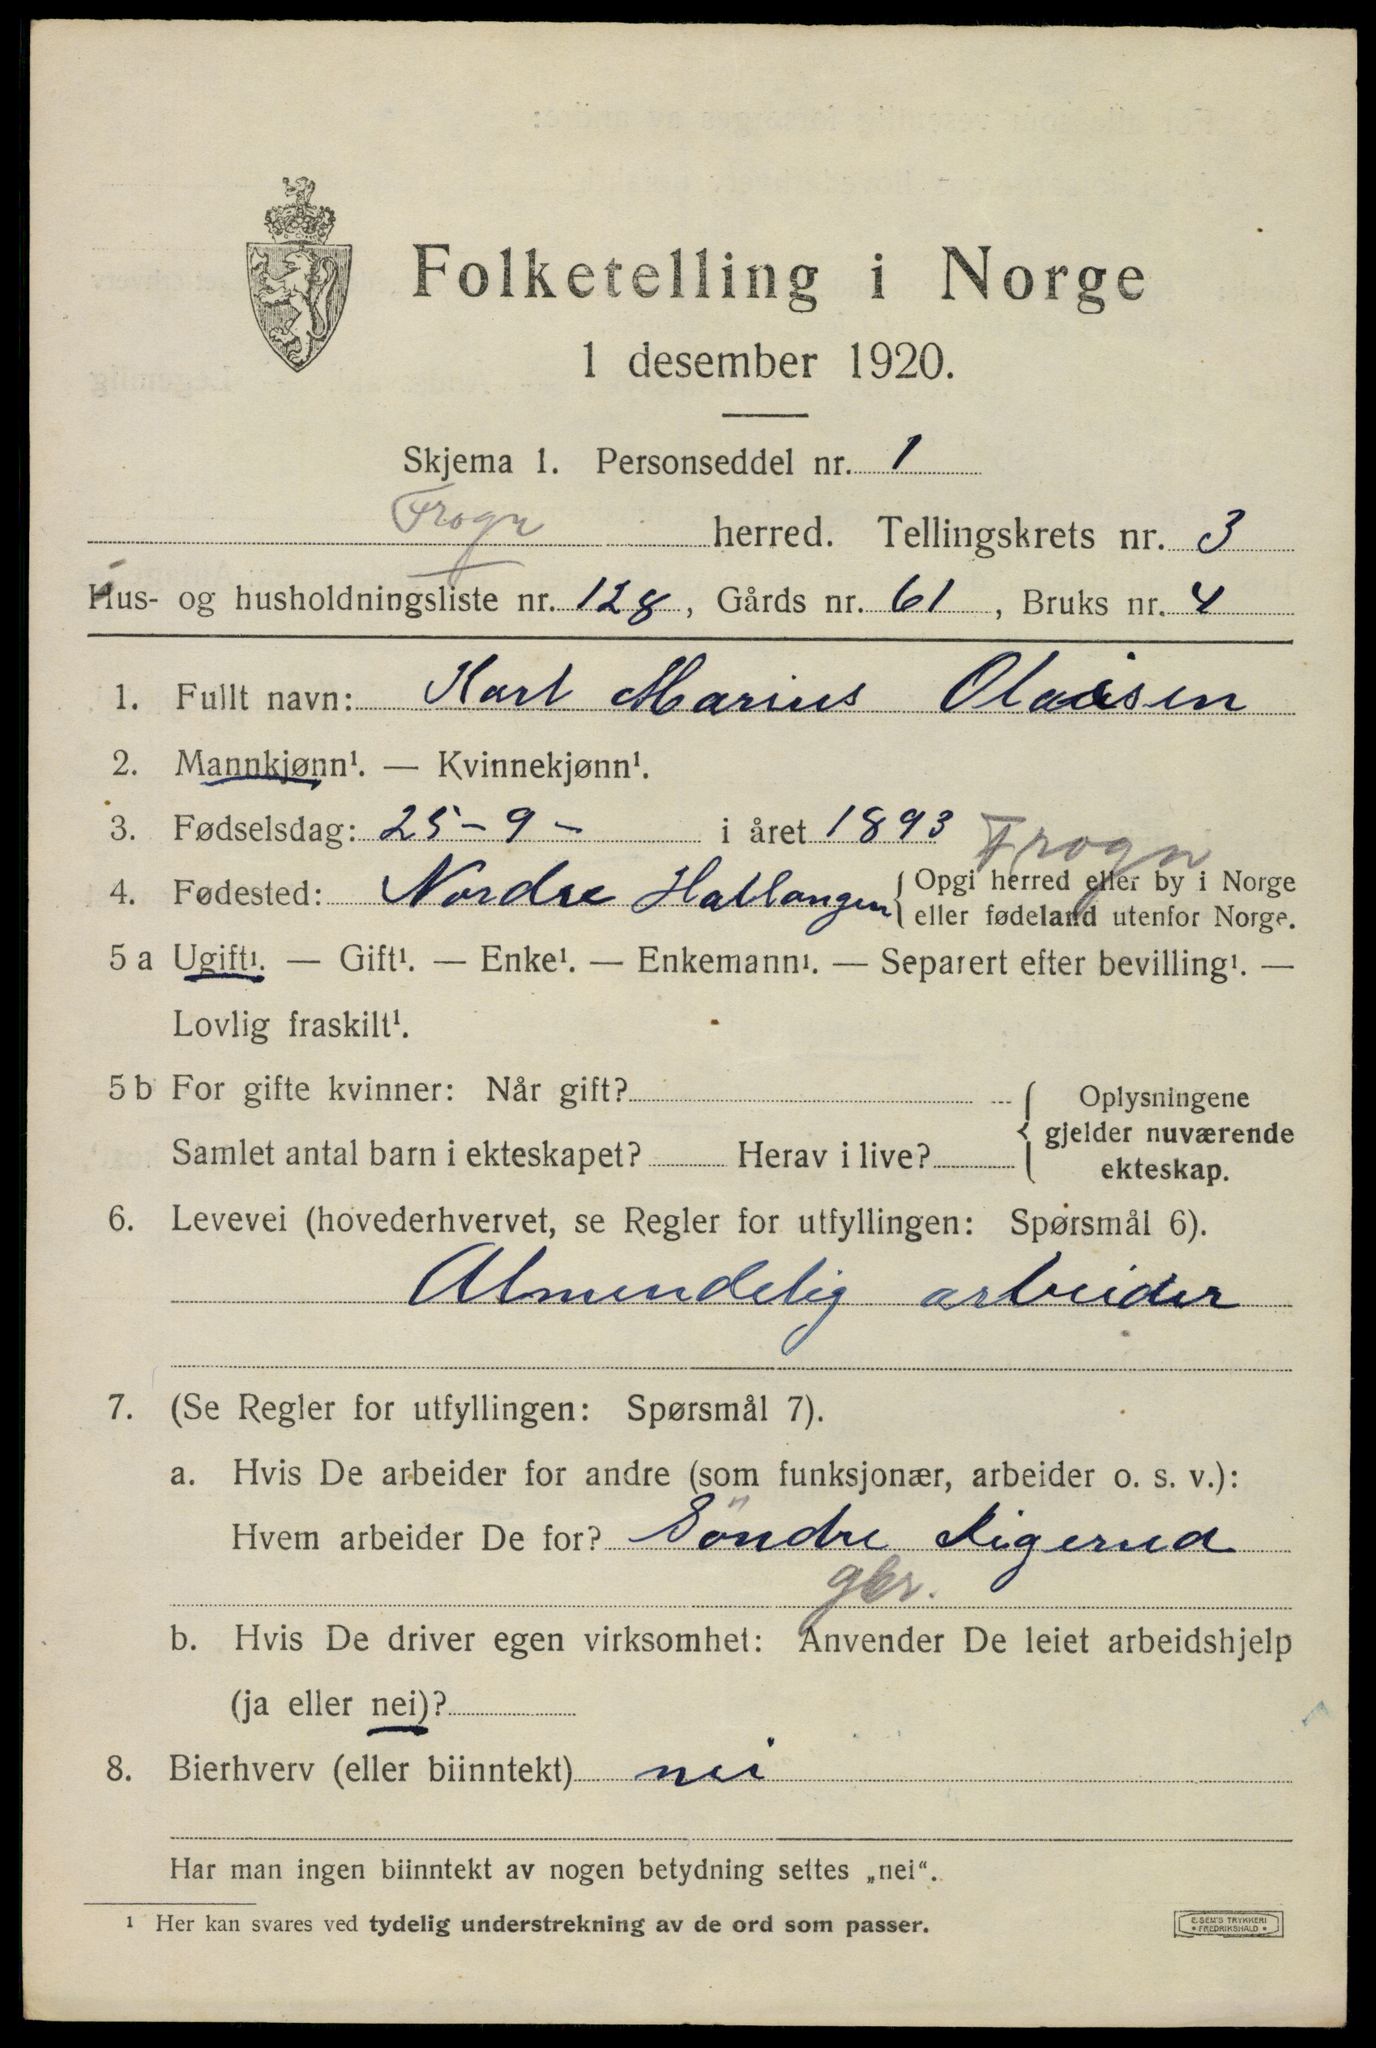 Folketelling i Norge
1 desember 1920.
Skjema 1. Personseddel nr. 1
Frogn herred. Tellingskrets nr. 3
Hus- og husholdningsliste nr. 128, Gårds nr. 61, Bruks nr. 4
1. Fullt navn: Karl Marius Olaisen
2. Mannkjønn¹. — Kvinnekjønn¹.
3. Fødselsdag: 25-9- i året 1893
Frogn
4. Fødested: Nordre Hallangen { Opgi herred eller by i Norge
eller fødeland utenfor Norge.
5 a Ugift¹. — Gift¹. — Enke¹. — Enkemann¹. — Separert efter bevilling¹. —
Lovlig fraskilt¹.
5 b For gifte kvinner: Når gift?
Samlet antal barn i ekteskapet? Herav i live?
{ Oplysningene
gjelder nuværende
ekteskap.
6. Levevei (hovederhvervet, se Regler for utfyllingen: Spørsmål 6).
Almendelig arbeider
7. (Se Regler for utfyllingen: Spørsmål 7).
a. Hvis De arbeider for andre (som funksjonær, arbeider o. s. v.):
Hvem arbeider De for? Söndre Kigerud
gbr.
b. Hvis De driver egen virksomhet: Anvender De leiet arbeidshjelp
(ja eller nei)?
8. Bierhverv (eller biinntekt) nei
Har man ingen biinntekt av nogen betydning settes „nei“.
¹ Her kan svares ved tydelig understrekning av de ord som passer.
E. SEM'S TRYKKERI
• FREDRIKSHALD •